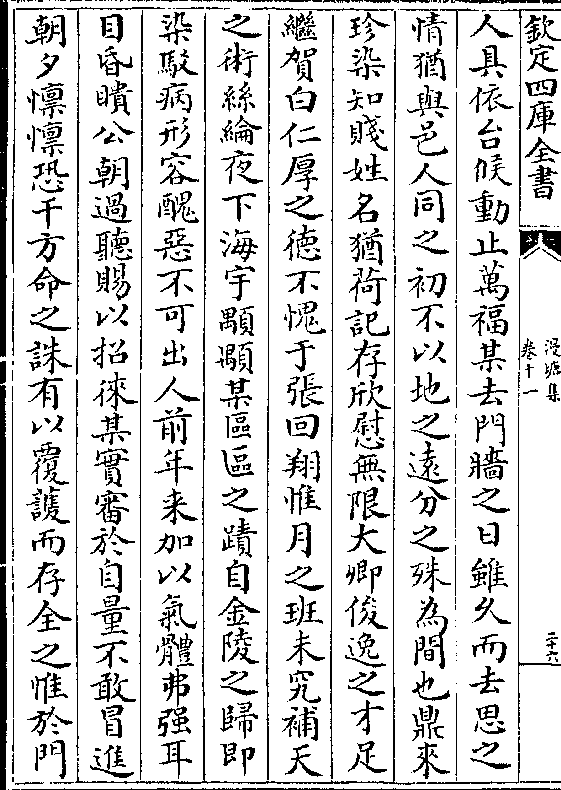 欽定四庫全書
漫塘集
卷十一
二十六
人具依台候動止萬福某去門牆之日雖久而去思之
情猶與邑人同之初不以地之遠分之殊為間也鼎來
珍染知賤姓名猶荷記存欣慰無限大卿俊逸之才足
繼賀白仁厚之徳不愧于張回翔惟月之班未究補天
之術絲綸夜下海宇顒顒某區區之蹟自金陵之歸即
染駁病形容醜惡不可出人前年来加以氣體弗强耳
目昏瞶公朝過聽賜以招徠某實審於自量不敢冒進
朝夕懍懍恐干方命之誅有以覆護而存全之惟於門